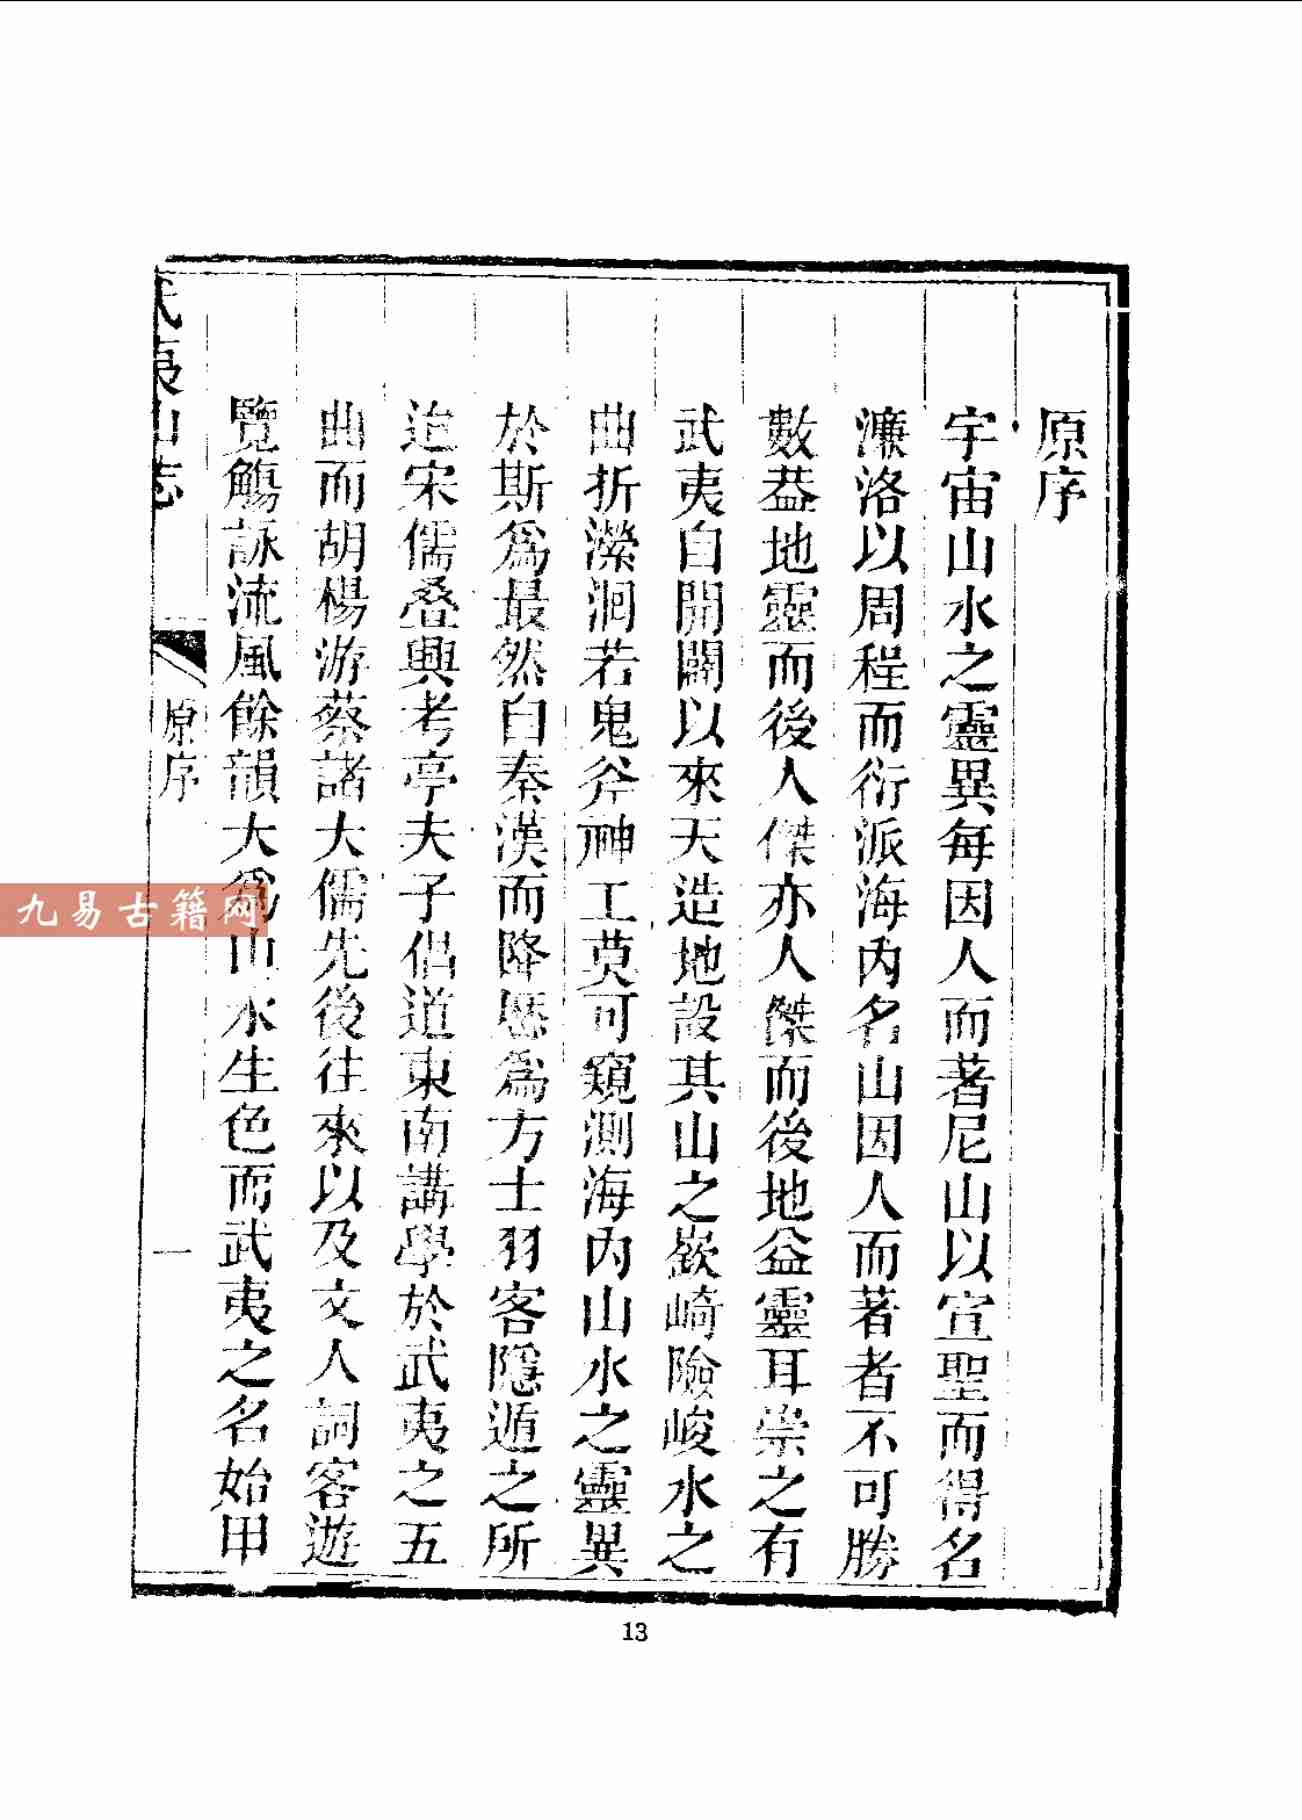 原序
宇宙山水之靈異每因人而著尼山以宣聖而得名
濂洛以周程而衍派海內名山因人而著者不可勝
數葢地靈而後人傑亦人傑而後地益靈耳崇之有
武夷自開闢以來天造地設其山之嶔崎險峻水之
曲折瀠洄若鬼斧神工莫可窺測海內山水之靈異
於斯爲最然自秦漢而降歷爲方士羽客隱遁之所
迨宋儒叠興考亭夫子倡道東南講學於武夷之五
曲而胡楊游蔡諸大儒先後往來以及文人詞客遊
覽觴詠流風餘韻大爲山水生色而武夷之名始甲
武夷山志
原序
一
九易古籍网
13